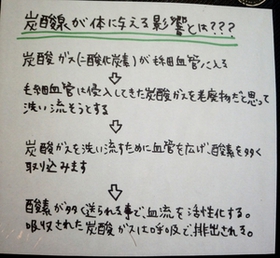 炭酸泉が体に与える影響とは???
炭酸ガス(二酸化炭素)が毛細血管に入る
⇩
毛細血管は侵入してきた炭酸ガスを老廃物だと思って
洗い流そうとする
⇩
炭酸ガスを洗い流すために血管を広げ、酸素を多く
取り込みます
⇩
酸素が多く送られる事で血流を活性化する。
吸収された炭酸ガスは呼吸で排出される。